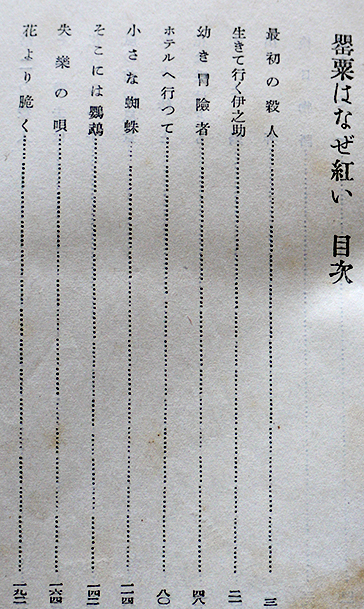 罌粟はなぜ紅い 目次
最初の殺人……三
生きて行く伊之助……二一
幼き冒險者……四八
ホテルへ行つて……八〇
小さな蜘蛛……一一四
そこには鸚鵡……一四二
失樂の唄……一六四
花より脆く……一九二